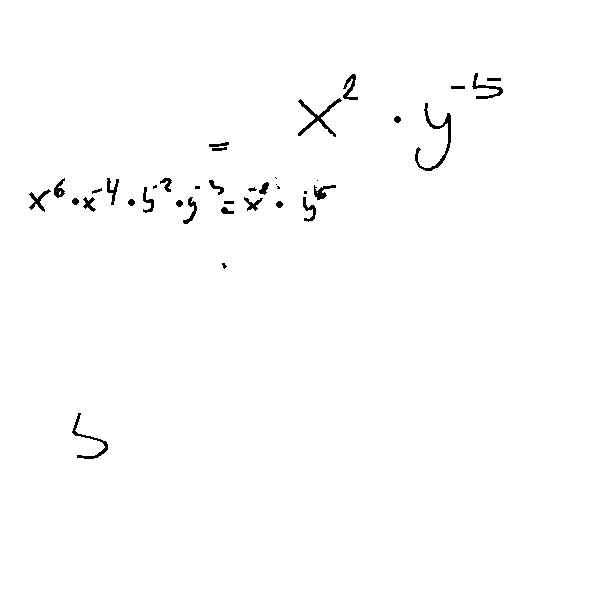 = x² · y⁻⁵
x⁶ · x⁻⁴ · y⁻² · y⁻³ = x⁻² · y⁵
5